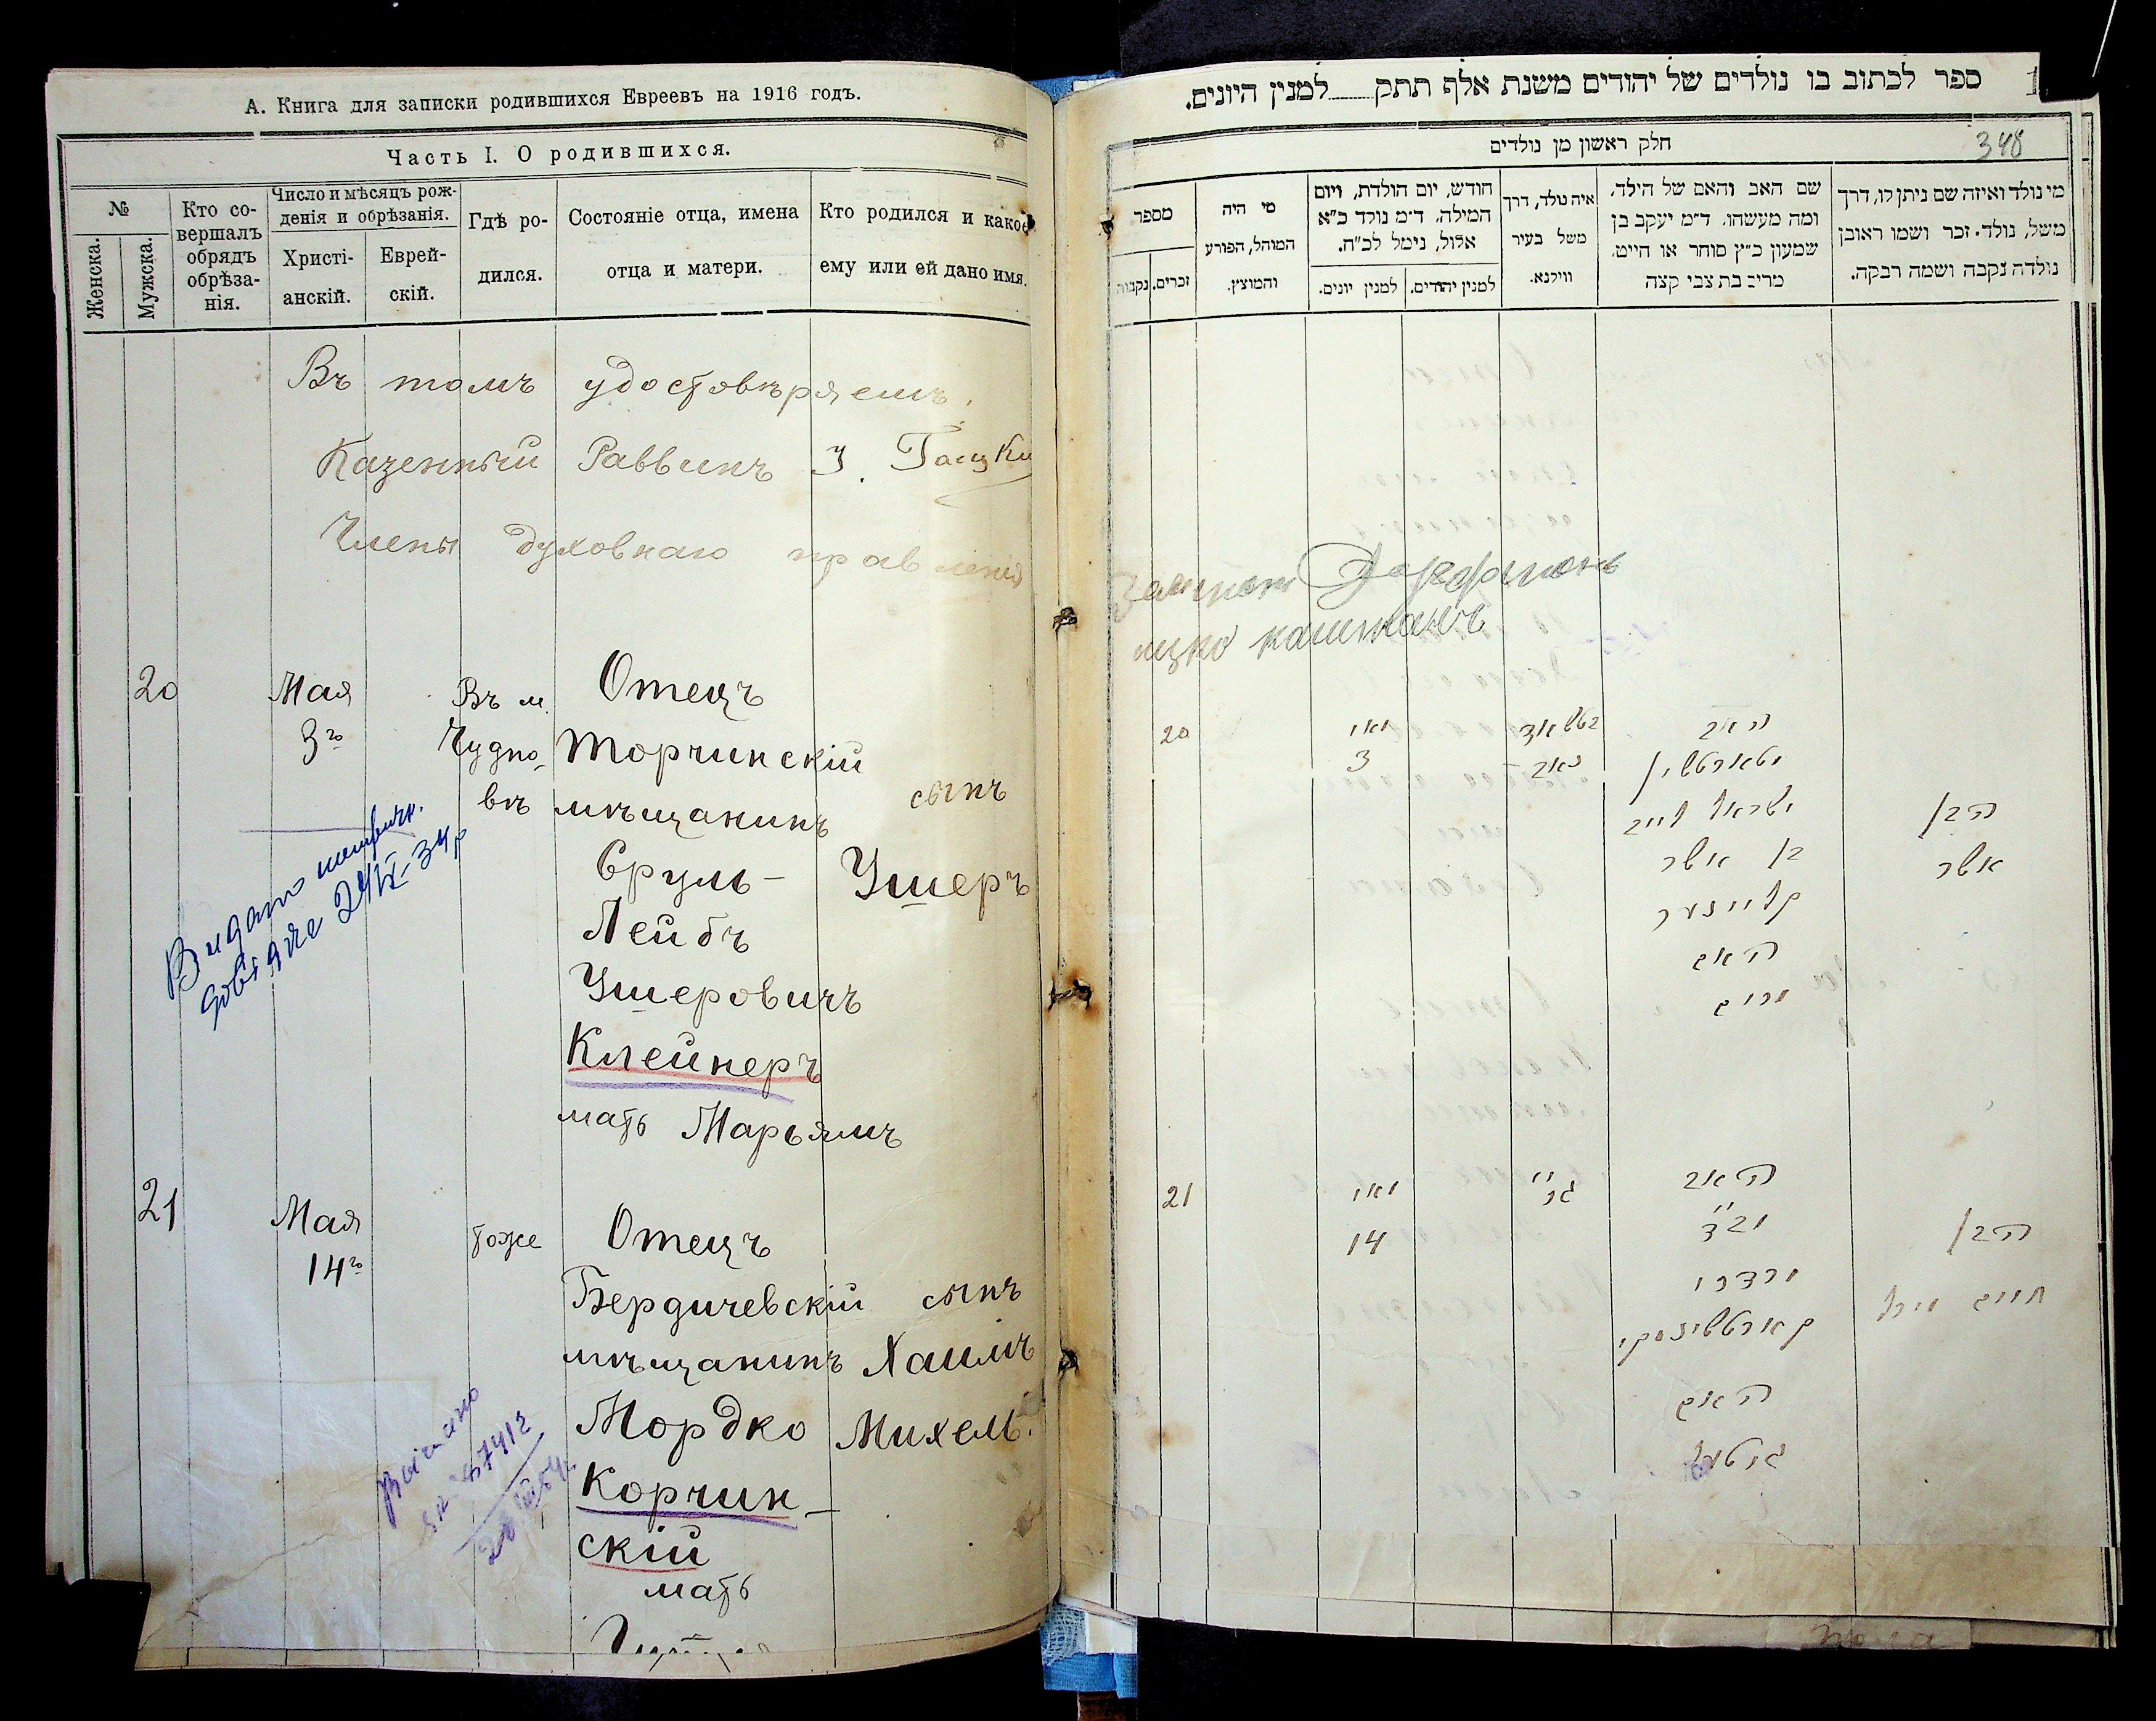 А. Книга для записки родившихся Евреевъ на 1916 годъ.
Часть I. О родившихся.
№
Женска.
Мужска.
Кто совершалъ обрядъ обрѣзанія.
Число и мѣсяцъ рожденія и обрѣзанія.
Христіанскій.
Еврейскій.
Гдѣ родился.
Состояніе отца, имена отца и матери.
Кто родился и какое ему или ей дано имя.
Въ томъ удостовѣряемъ,
Казенный Раввинъ
Члены духовнаго правленія
20
Мая
3го
Въ м.
Чудно-
вѣ
Отецъ
Торчинскій
мѣщанинъ
Сруль-
Лейбъ
Ушеровичъ
Клейнеръ
мать Марьямъ
сынъ
Ушеръ
21
Мая
14го
тоже
Отецъ
Бердичевскій
мѣщанинъ
Мордко
Корчин-
скій
мать
сынъ
Хаимъ
Михель.
ספר לכתוב בו נולדים של יהודים משנת אלף תתק למנין היונים.
348
חלק ראשון מן נולדים
מספר
זכרים.
נקבות.
מי היה
המוהל, הפורע
והמוצץ.
חודש, יום הולדת, ויום
המילה. ד״מ נולד כ״א
אלול, נימל לכ״ח.
למנין יונים.
למנין יהודים.
איה נולד, דרך
משל בעיר
ווילנא.
שם האב והאם של הילד,
ומה מעשהו. ד״מ יעקב בן
שמעון כ״ץ סוחר או חייט,
מרים בת צבי קצה
מי נולד ואיזה שם ניתן לו, דרך
משל, נולד. זכר ושמו ראובן
נולדה נקבה ושמה רבקה.
20
מאי
3
האב
ישראל לייב
בן אשר
קליינער
האם
מרים
הבן
אשר
21
מאי
14
האב
מרדכי
קארטשינסקי
האם
גיטעל
הבן
חיים מיכל